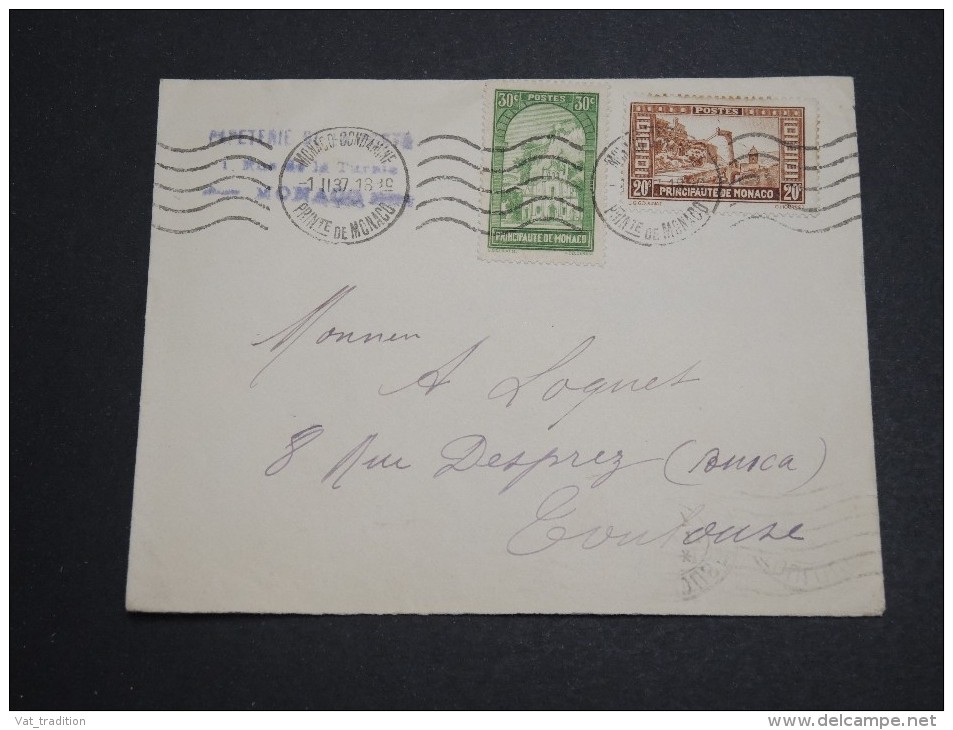 PAPETERIE
1, Rue de la Turbie
MONACO
MONACO-CONDAMINE
-1 II 37.18 30
PRINTE DE MONACO
30c POSTES 30c
PRINCIPAUTE DE MONACO
POSTES
20c PRINCIPAUTE DE MONACO 20c
PRINTE DE MONACO
Monsieur
A Loquet
8 Rue Desprez (Busca)
Toulouse
Vat_tradition
delcampe.net